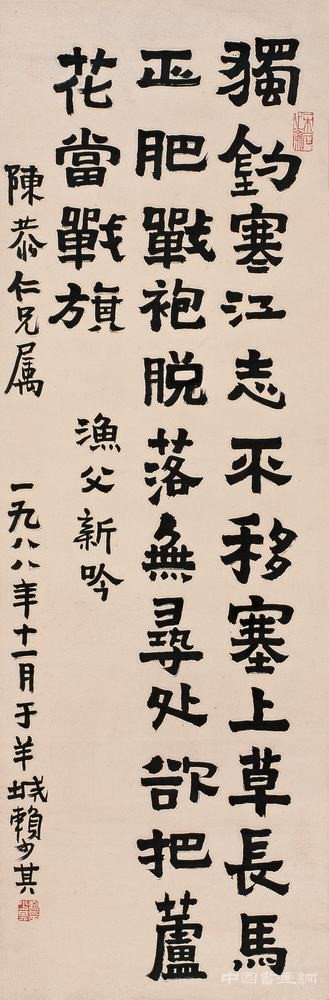 獨釣寒江志不移塞上草長馬
正肥戰袍脱落無尋处欲把蘆
花當戰旗
漁父新吟
陳恭仁兄属 一九八八年十一月于羊城賴少其